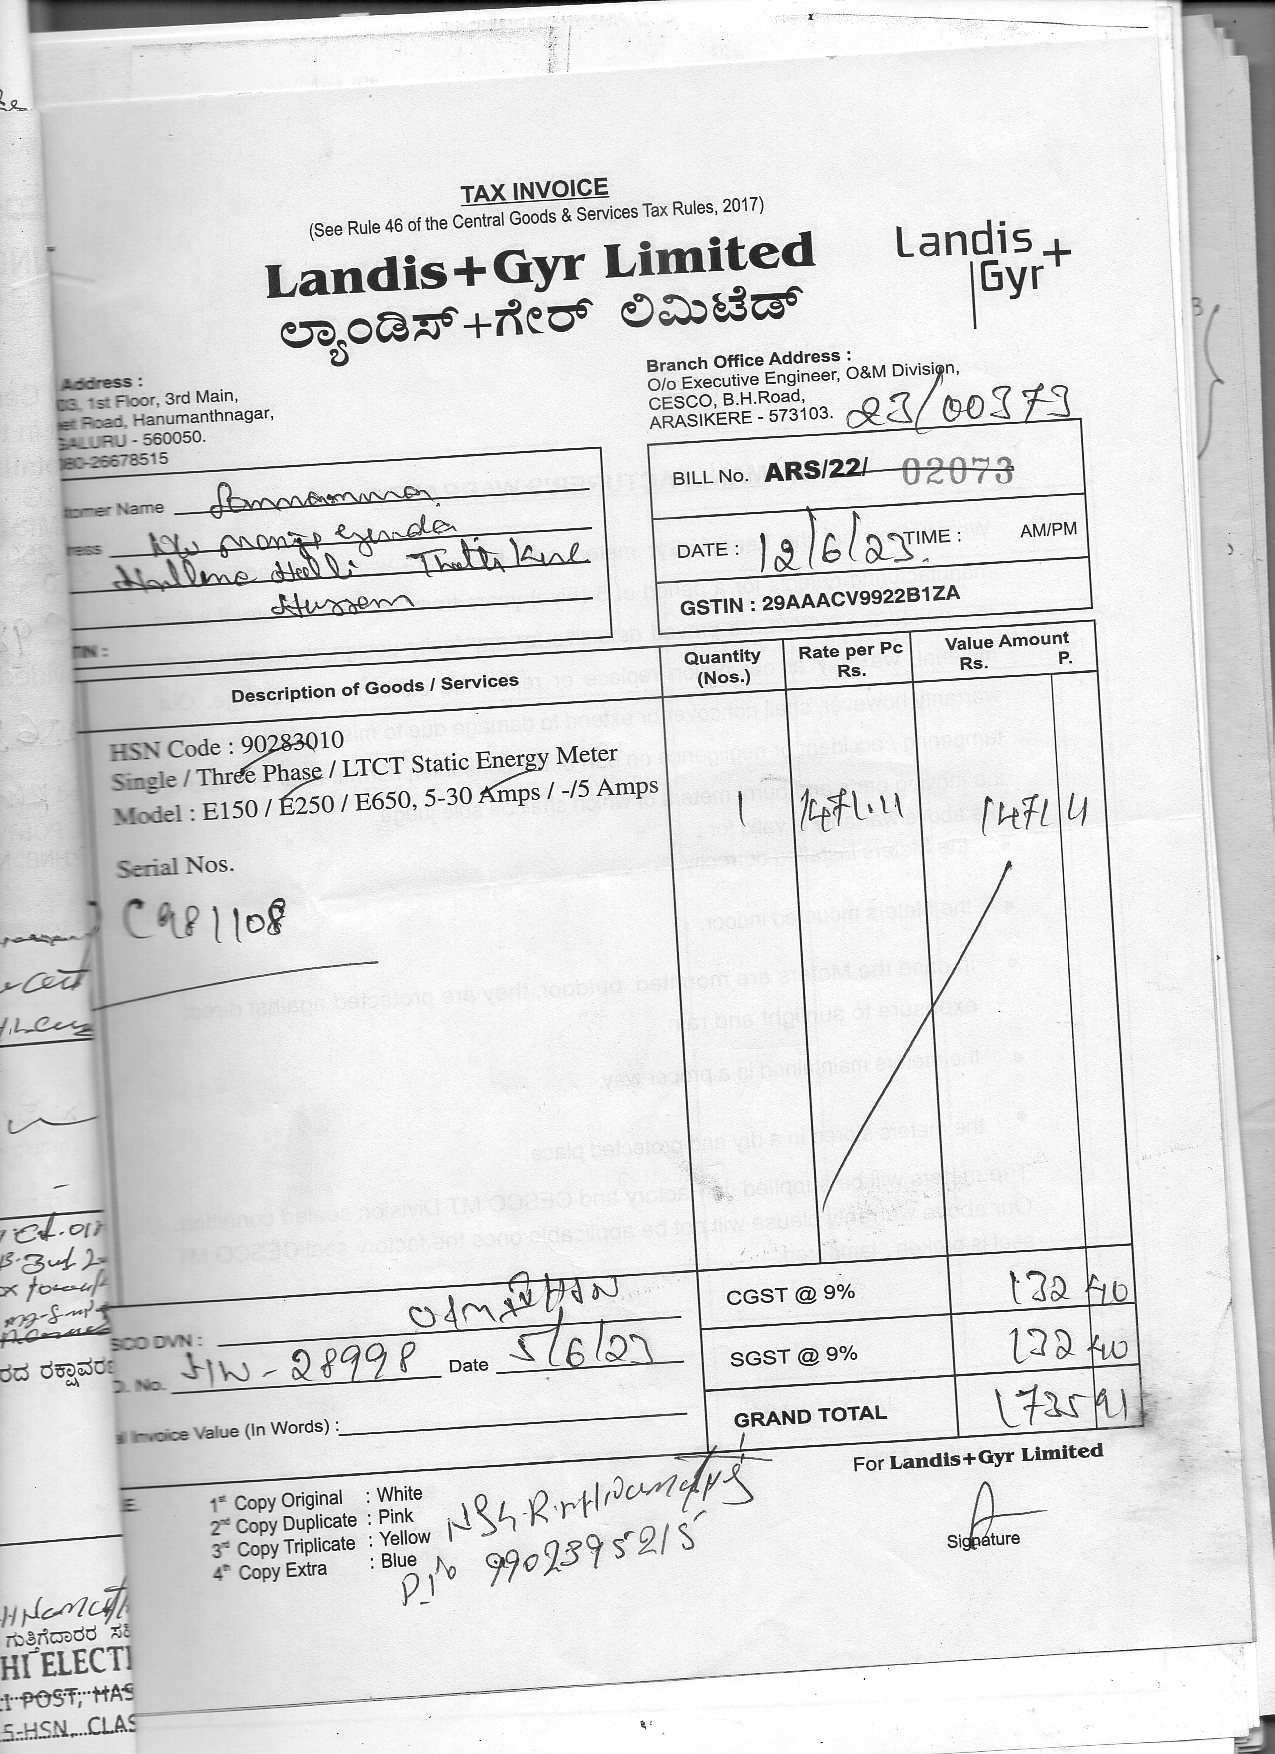 TAX INVOICE
(See Rule 46 of the Central Goods & Services Tax Rules, 2017)
Landis+Gyr Limited
ಲ್ಯಾಂಡಿಸ್+ಗೇರ್ ಲಿಮಿಟೆಡ್
Landis
Gyr+
Address :
03, 1st Floor, 3rd Main,
et Road, Hanumanthnagar,
GALURU - 560050.
080-26678515
Branch Office Address :
O/o Executive Engineer, O&M Division,
CESCO, B.H.Road,
ARASIKERE - 573103.
23/00373
tomer Name
ress
Hassan
TIN :
BILL No. ARS/22/ 02073
DATE : 12/6/23 TIME : AM/PM
GSTIN : 29AAACV9922B1ZA
Description of Goods / Services
Quantity (Nos.)
Rate per Pc Rs.
Value Amount Rs. P.
HSN Code : 90283010
Single / Three Phase / LTCT Static Energy Meter
Model : E150 / E250 / E650, 5-30 Amps / -/5 Amps
1 1471.11 1471 11
Serial Nos.
C981108
CGST @ 9% 132 40
SCO DVN :
SGST @ 9% 132 40
D. No. 28998 Date 5/6/23
GRAND TOTAL 1735 91
al Invoice Value (In Words) :
For Landis+Gyr Limited
E.
1st Copy Original : White
2nd Copy Duplicate : Pink
3rd Copy Triplicate : Yellow
4th Copy Extra : Blue
9902395215
Signature
ರದ ರಕ್ಷಾವರ
ಗುತ್ತಿಗೆದಾರರ ಸಹಿ
HI ELECTI
I POST, HAS
5-HSN, CLAS